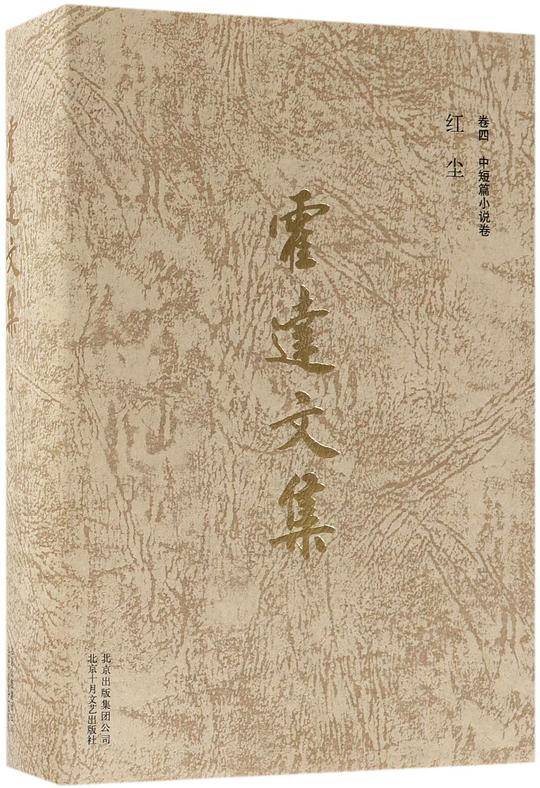 卷四 中短篇小说卷
红尘
霍達文集
北京出版集团公司
北京十月文艺出版社
霍達文集